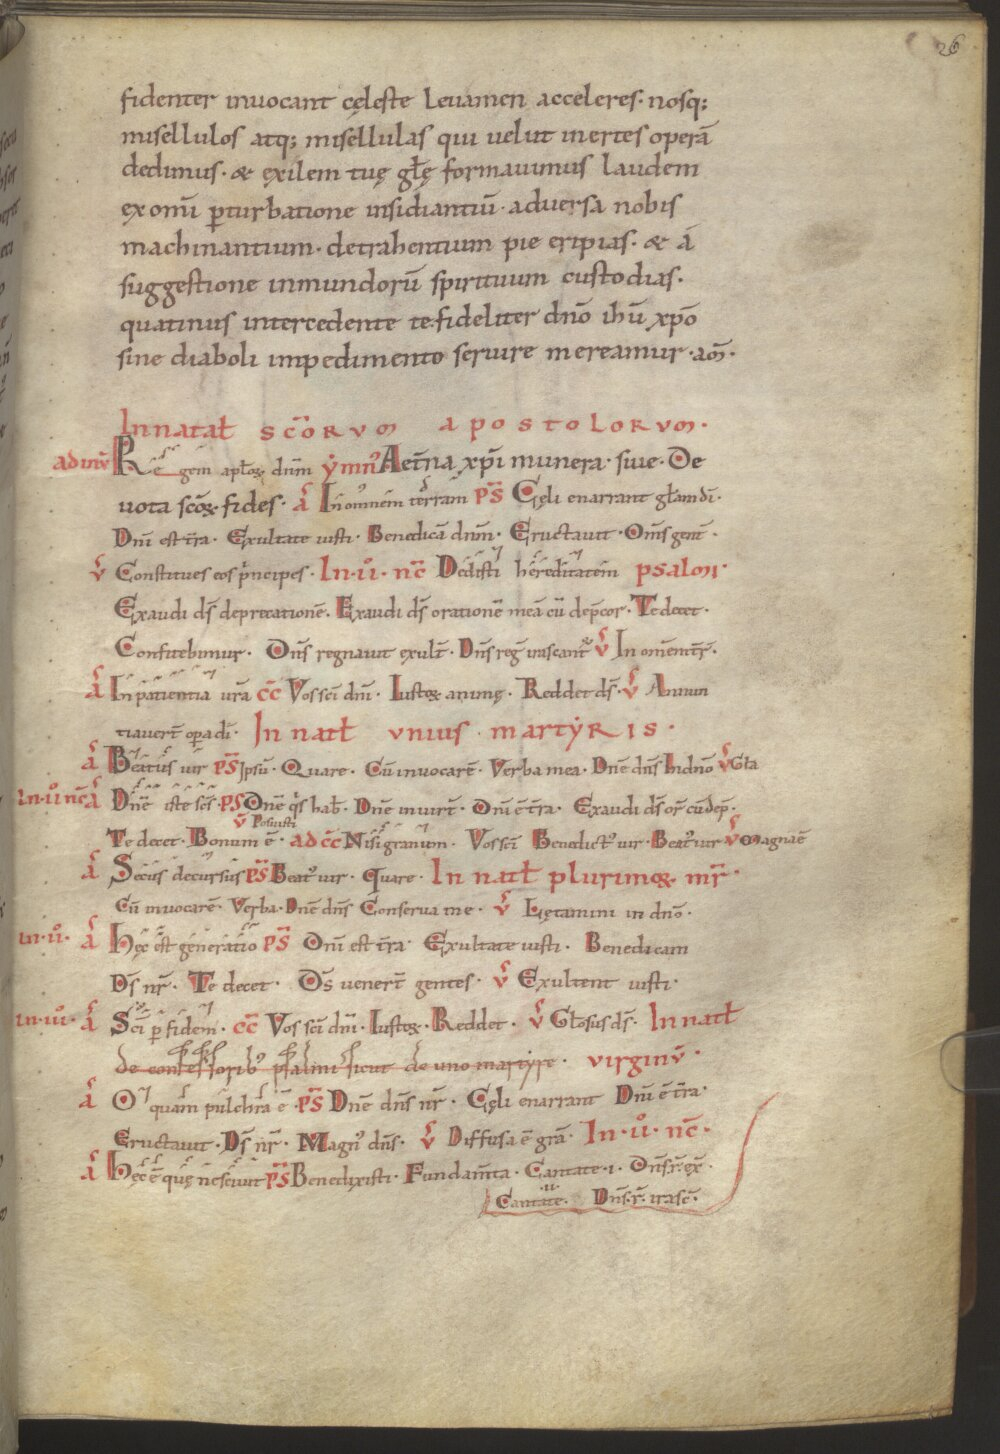 26
fidenter inuocant cęleste leuamen acceleres· nosq;
misellulos atq; misellulas qui uelut inertes operā
dedimus· & exilem tuę gl̄ę formauimus laudem
ex om̄i p̄turbatione insidiantiū· aduersa nobis
machinantium· detrahentium pie eripias· & á
suggestione inmundorū spirituum custodias·
quatinus intercedente te· fideliter dn̄o ih̄u xp̄o
sine diaboli impedimento seruire mereamur· am̄·
In natal̄ sc̄orum apostolorum·
ad inū Regem apl̄oꝝ dn̄m ẏmn᾽ Aet̄na xp̄i munera· siue· De
uota sc̄oꝝ fides· ā In omnem terram ps̄ Cęli enarrant gl̄am di·
Dn̄i est t̄ra· Exultate iusti· Benedicā dn̄m· Eructauit· Om̄s gent̄·
v̄ Constitues eos p̄ncipes· In· ii· nc̄ Dedisti hereditatem psalmi·
Exaudi ds̄ deprecationē· Exaudi ds̄ orationē meā cū dep̄cor· Te decet·
Confitebimur· Dn̄s regnauit exult̄· Dn̄s reḡ irascant̄ v̄ In om̄em t̄r̄·
ā In patientia ur̄a cc̄ Vos sc̄i dn̄i· Iustoꝝ animę· Reddet ds̄· v̄ Annun
tiauer̄t opera di· In natl̄ unius martẏris·
ā Beatus uir ps̄ Ipsū· Quare· Cū inuocarē· Verba mea· Dn̄e dn̄s In dn̄o v̄ Gl̄a
In· ii nc̄ ā Dn̄e iste sc̄s· ps̄ Dn̄e q̄s hab̄· Dn̄e in uirt̄· Dn̄i ē t̄ra· Exaudi ds̄ or̄ cū dep̄·
v̄ Posuisti
Te decet· Bonum ē· ad cc̄ Nisi granum· Vos sc̄i Benedict᾽ uir· Beat᾽ uir v̄ Magna ē
ā Secus decursus ps̄ Beat᾽ uir· quare· In natl̄ plurimoꝝ mr̄·
Cū inuocarē· Verba· Dn̄e dn̄s Conserua me· v̄ Lętamini in dn̄o·
in· ii· ā Hęc est generatio ps̄ Dn̄i est t̄ra· Exultate iusti· Benedicam
Ds̄ nr̄· Te decet· Ds̄ uener̄t gentes· v̄ Exultent iusti·
in· iii· ā Sc̄i p̄ fidem· cc̄ Vos sc̄i dn̄i· Iustoꝝ· Reddet· v̄ Gl̄osus ds̄· In natl̄
de confessorib᾽ psalmi sicut de uno martẏre· uirginū·
ā O quam pulchra ē· ps̄ Dn̄e dn̄s nr̄· Cęli enarrant Dn̄i ē t̄ra·
Eructauit· Ds̄ nr̄· Magn᾽ dn̄s· v̄ Diffusa ē gr̄a· In· ii· nc̄·
ā Hęc ē quę nesciuit ps̄ Benedixisti· Fundam̄ta· Cantate· i· Dn̄s r̄· ex̄·
Cantate· ii Dn̄s· r̄· irasc̄·